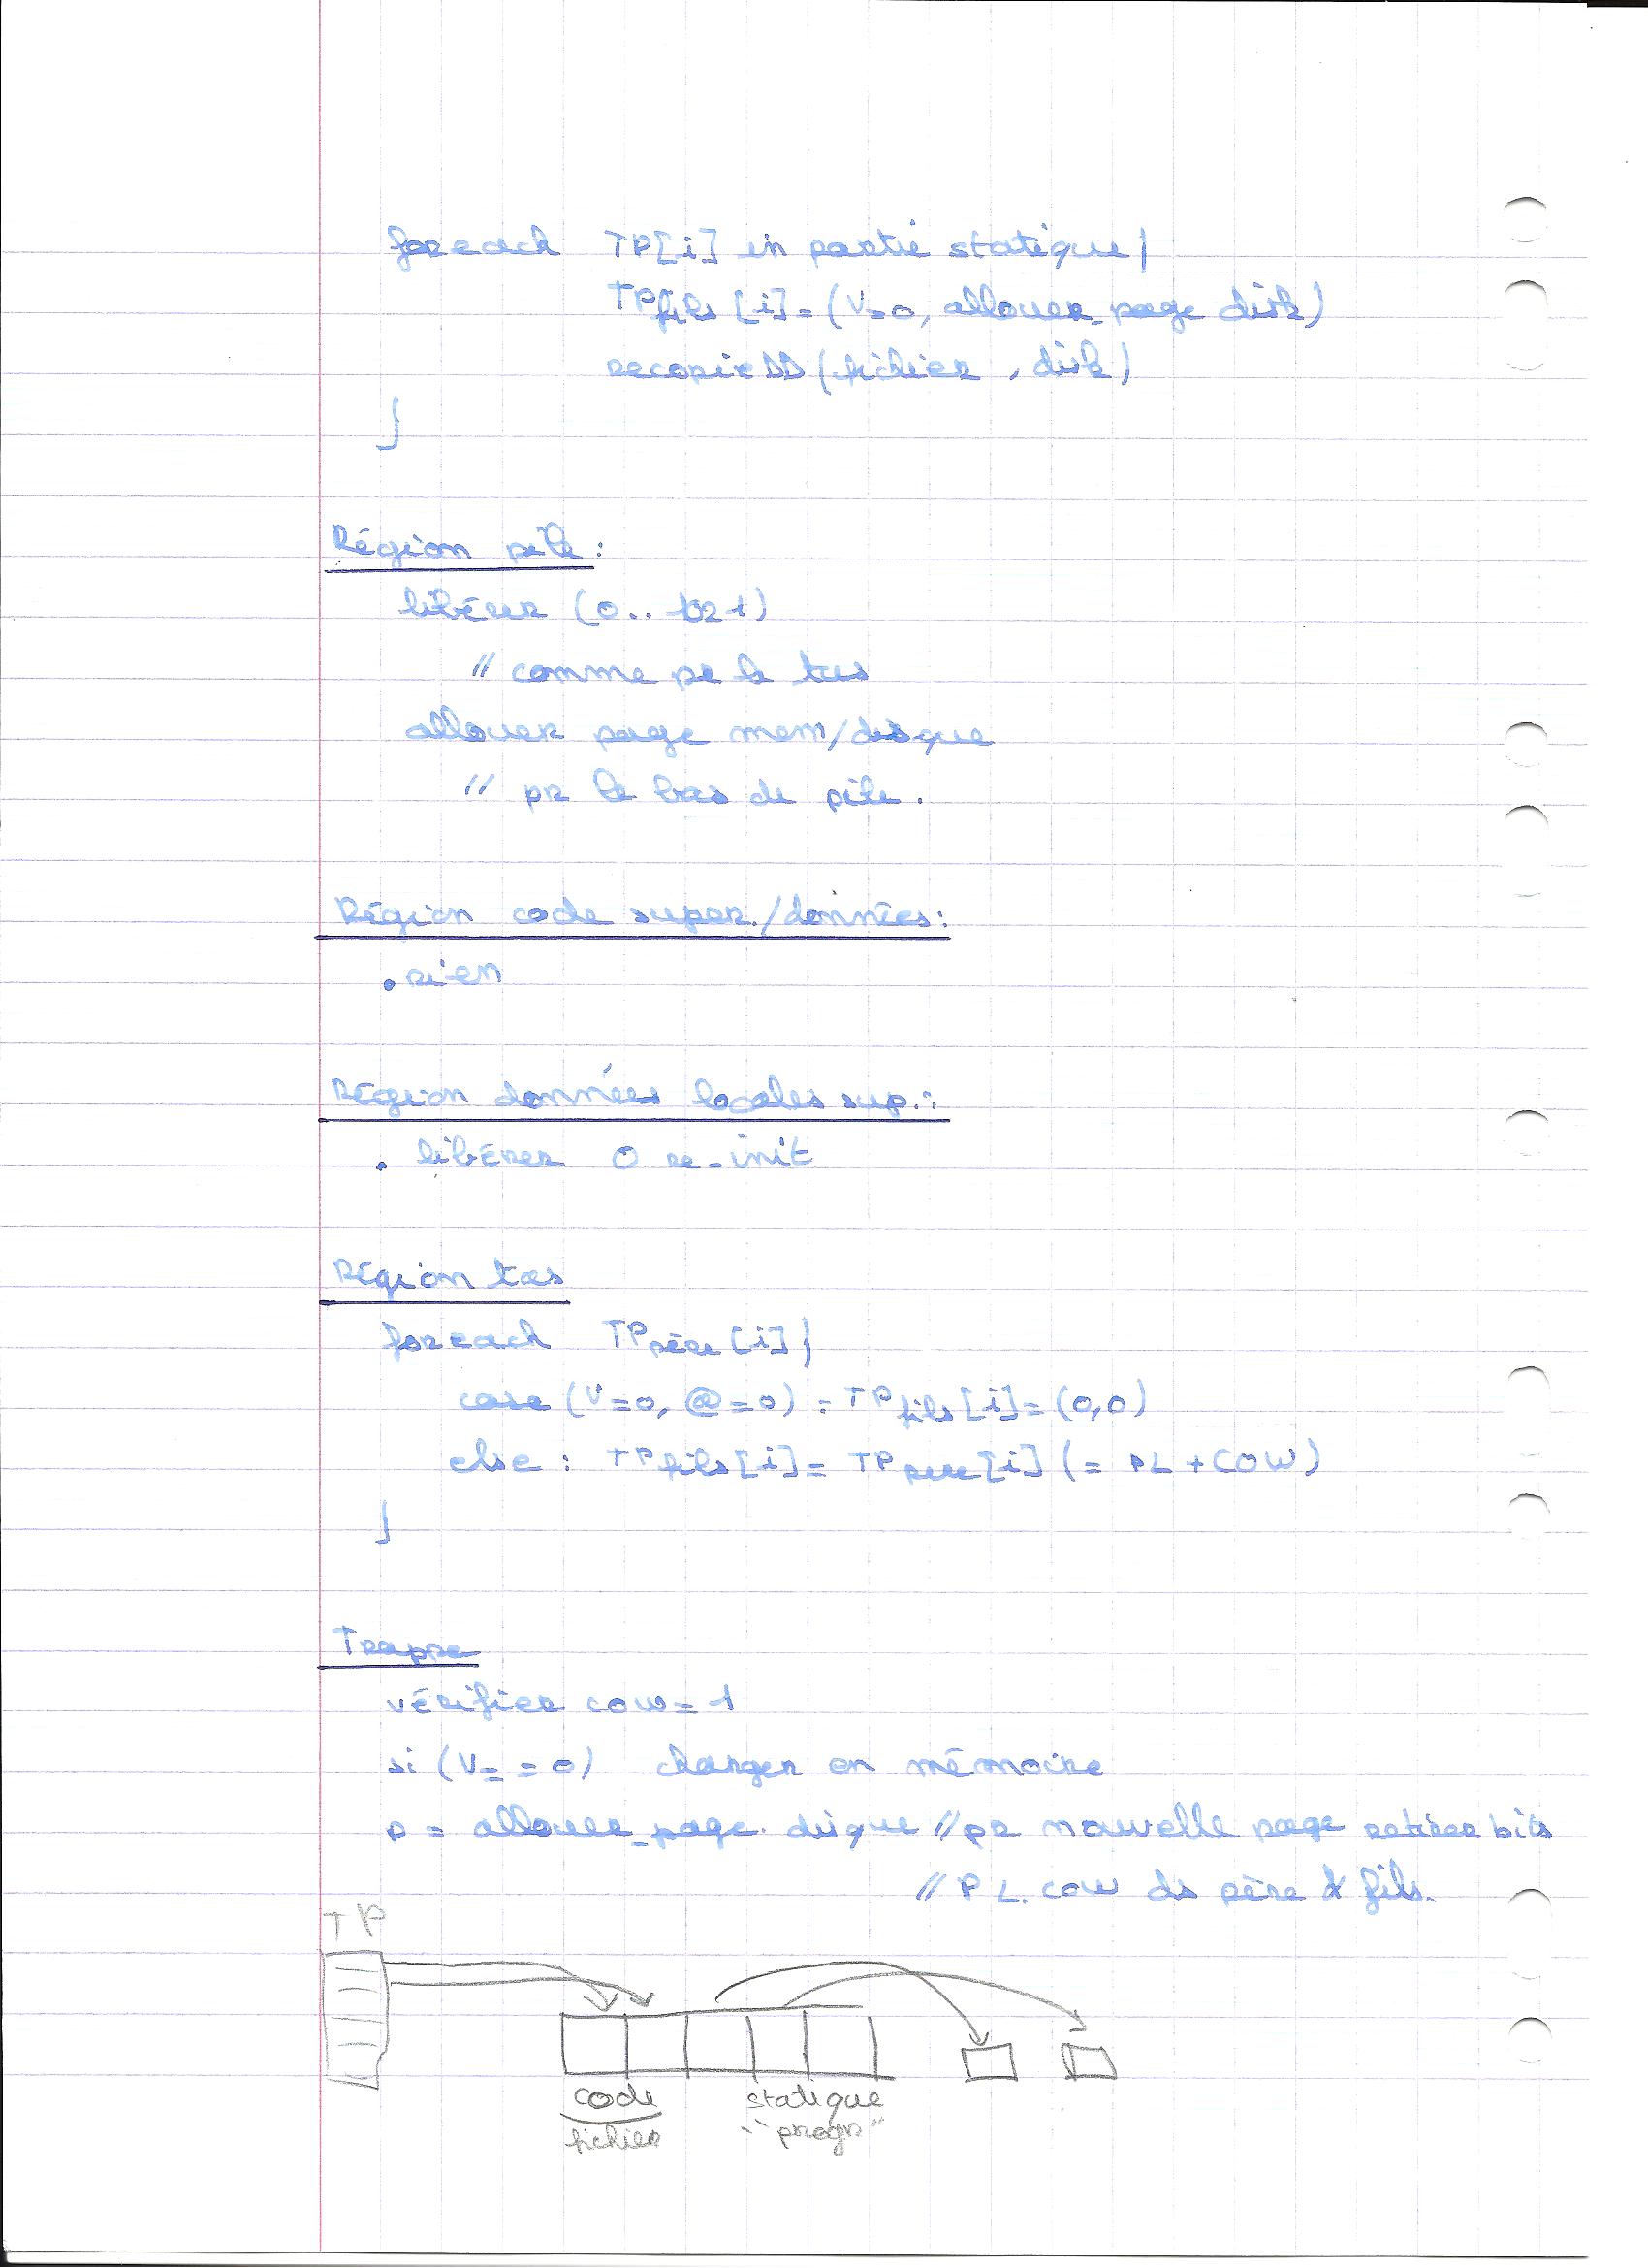 foreach TP[i] in partie statique {
TPfils [i] = (V=0, allouer_page disk)
recopieDD (fichier, disk)
}
Région pile :
libérer (0..
// comme pr le tas
allouer page mem/disque
// pr le bas de pile.
Région code super./données :
. rien
Région données locales sup. :
. libérer O re-init
Région tas
foreach TPpère [i] {
case (V=0, @=0) : TPfils [i] = (0,0)
else : TPfils [i] = TPpère [i] (= PL + COW)
}
Trappe
vérifier cow = 1
si (V==0) charger en mémoire
p = allouer_page disque // pr nouvelle page retirer bits
// PL. cow ds père & fils.
TP
code statique
fichier "progr"